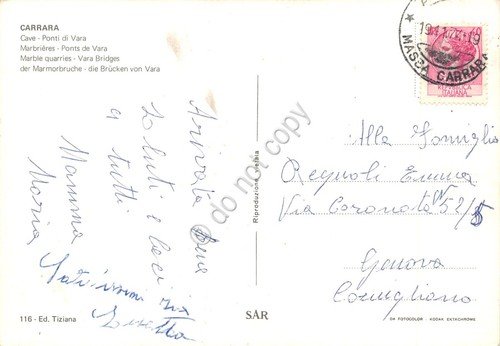 CARRARA
Cave - Ponti di Vara
Marbrières - Ponts de Vara
Marble quarries - Vara Bridges
der Marmorbruche - die Brücken von Vara
Arrivata bene
saluti e baci
a tutti
Mamma
Maria
116 - Ed. Tiziana
Riproduzione vietata
SAR
MASSA CARRARA
REPUBBLICA
ITALIANA
Alla Famiglia
Regnoli Emma
Via Coronata N 52/5
Genova
Cornigliano
DA FOTOCOLOR - KODAK EKTACHROME
do not copy